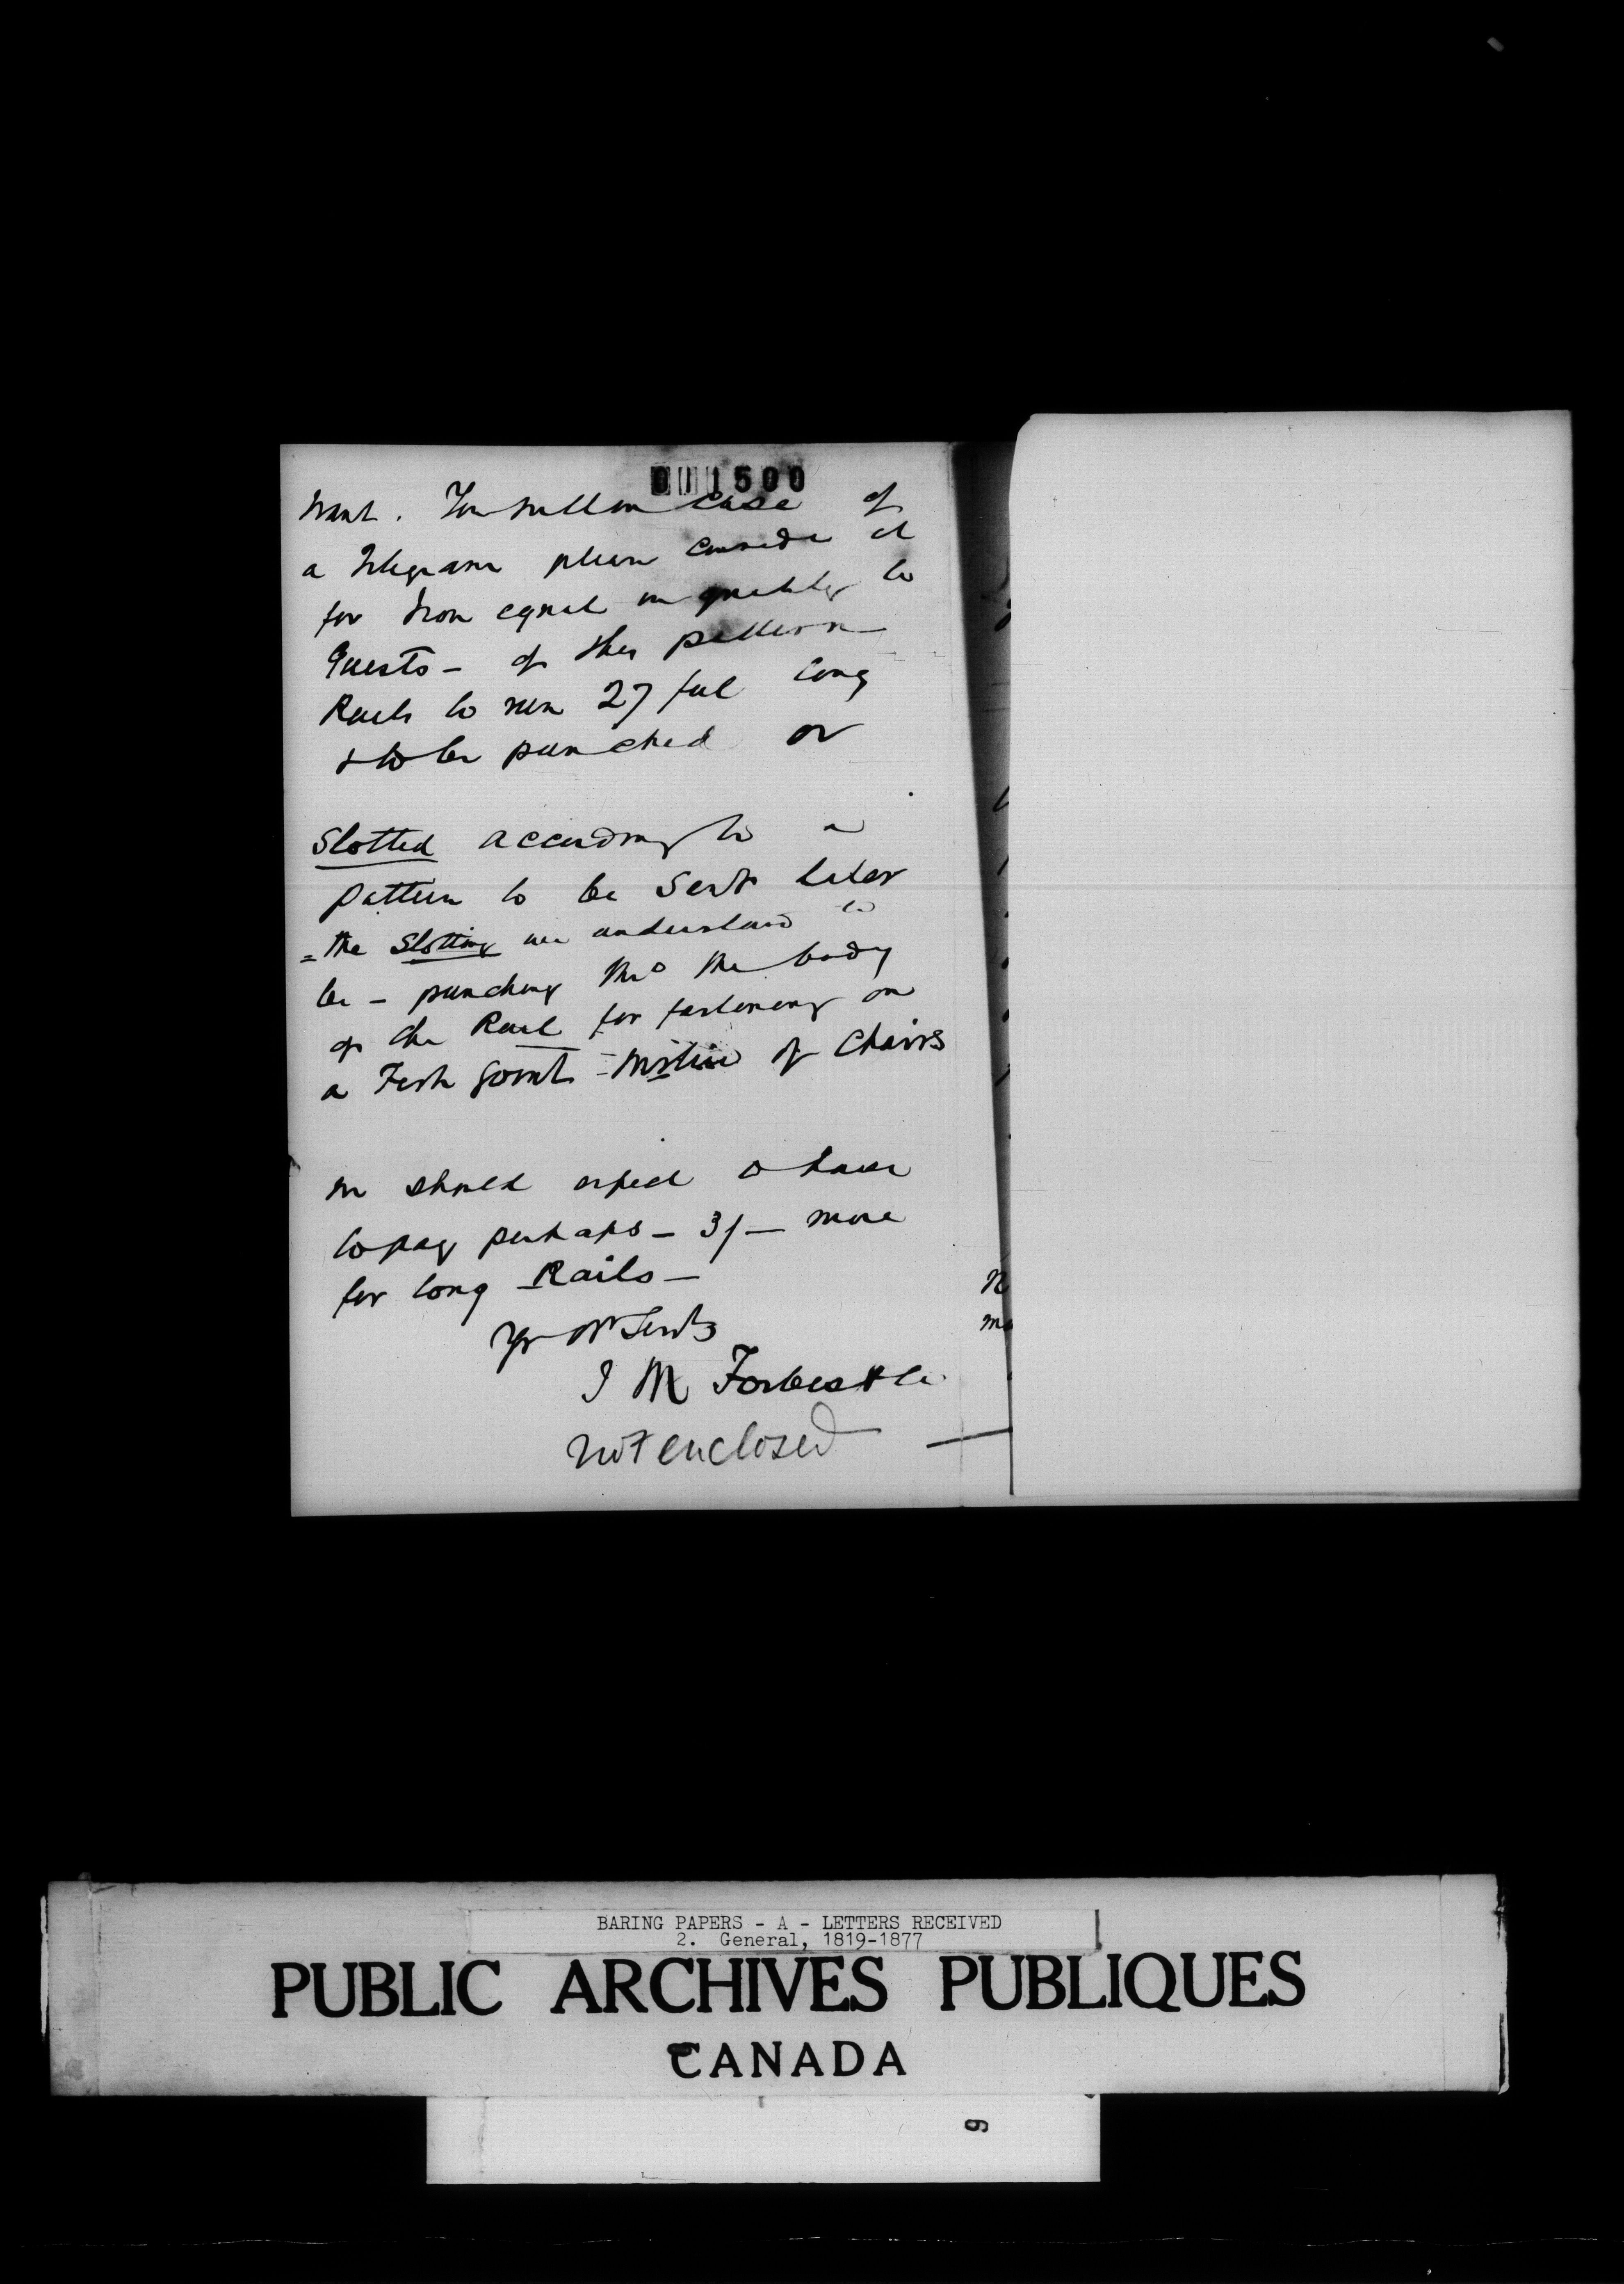 001500
want. You will in case of
a Telegram please consider it
for Iron equal in quality to
Guests - of this pattern
Rails to run 27 feet long
& to be punched or
Slotted according to a
pattern to be sent later
= the Slotting we understand to
be - punching thro the body
of the Rail for fastening on
a Fish Joint - instead of Chairs
we should expect to have
to pay perhaps - 3/- more
for long Rails -
Yr Ob Servts
J M Forbes & Co
not enclosed
BARING PAPERS - A - LETTERS RECEIVED
2. General, 1819-1877
PUBLIC ARCHIVES PUBLIQUES
CANADA
9